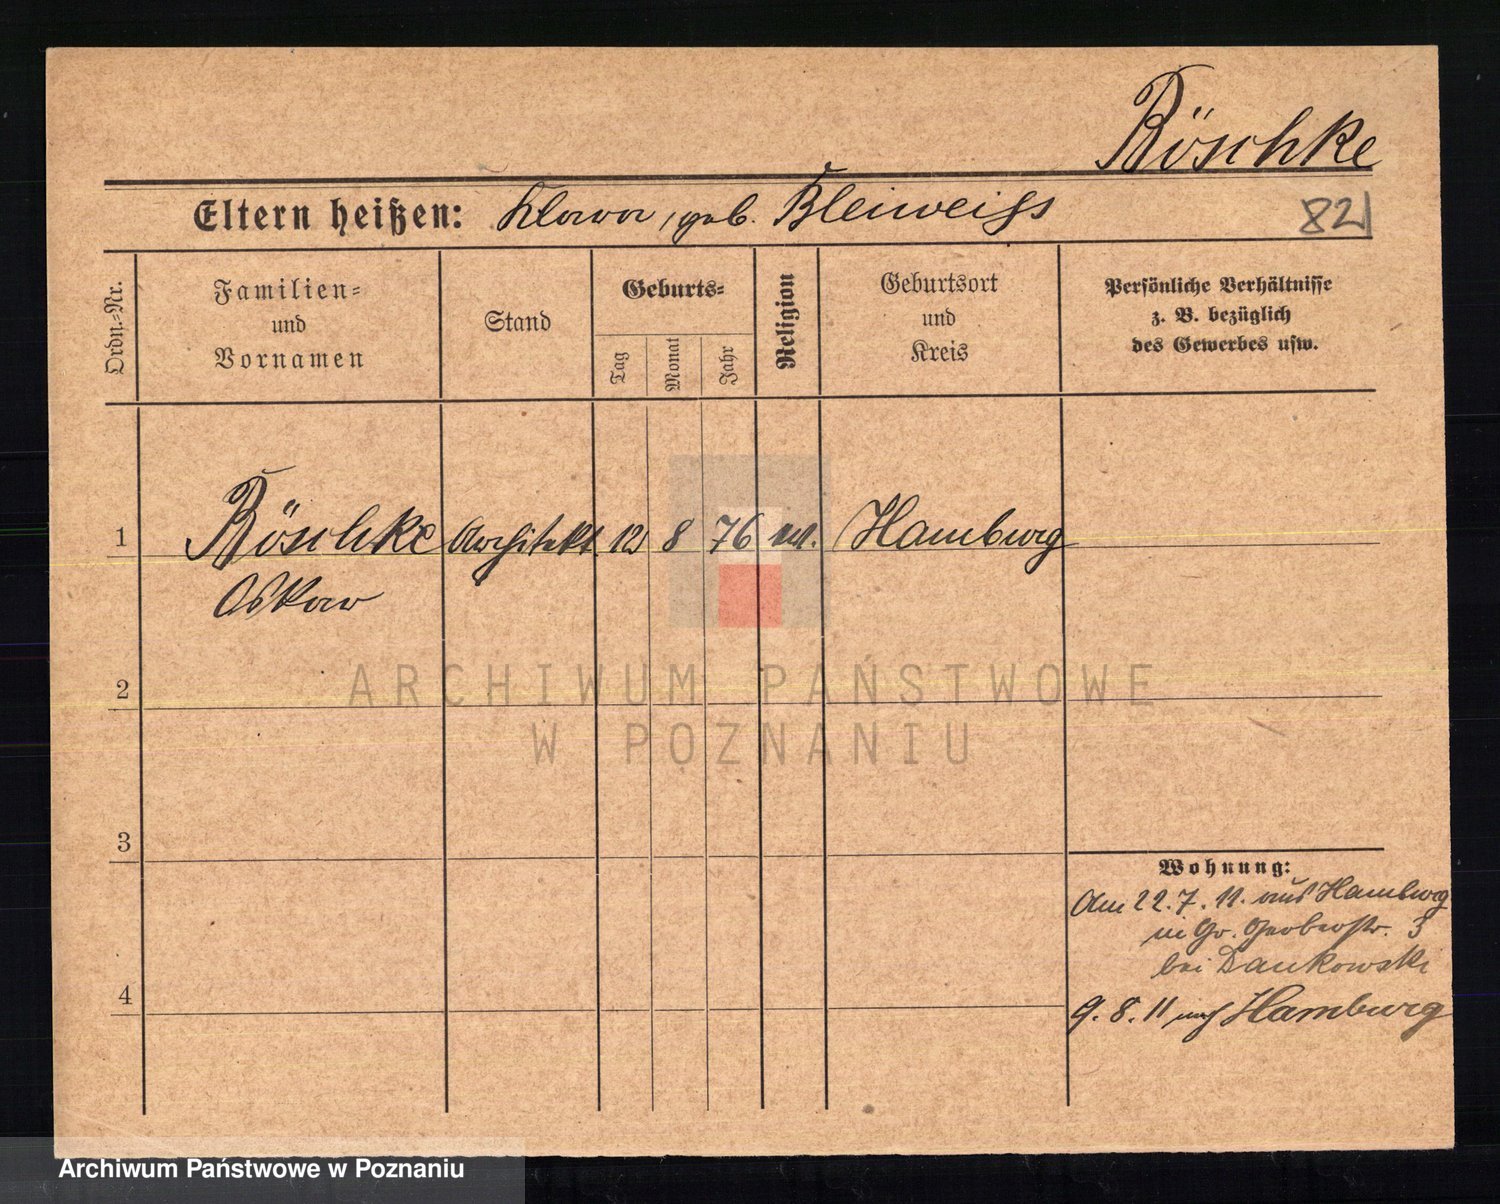 Röschke
Eltern heißen: Klara, geb. Bleiweiss
82
Ordn.=Nr.
Familien=
und
Vornamen
Stand
Geburts=
Tag
Monat
Jahr
Religion
Geburtsort
und
Kreis
Persönliche Verhältnisse
z. B. bezüglich
des Gewerbes usw.
1 Röschke Architekt 12 8 76 Hamburg
Oskar
2
3
4
Wohnung:
Am 22.7.11. aus Hamburg
in Gr. Gerberstr. 3
bei Dankowski
9.8.11 nach Hamburg
ARCHIWUM PAŃSTWOWE
W POZNANIU
Archiwum Państwowe w Poznaniu